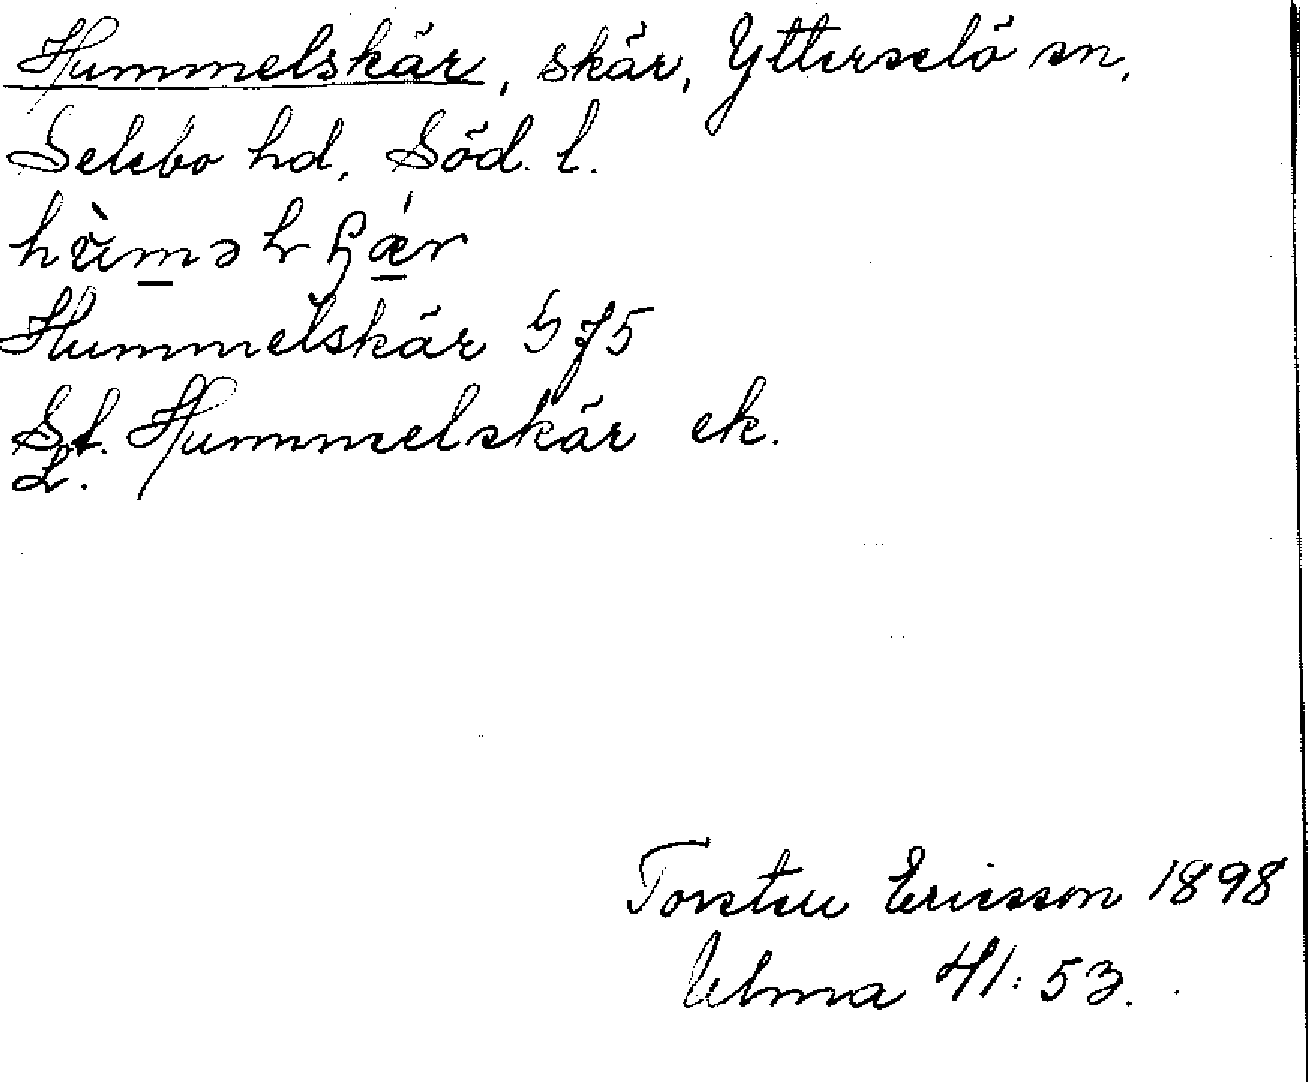 Hummelskär, skär, Ytterselö sn,
Selebo hd, Söd. l.
Hummelskär G 75
St. Hummelskär ek.
L.
Torsten Ericsson 1898
Ulma 41:53.